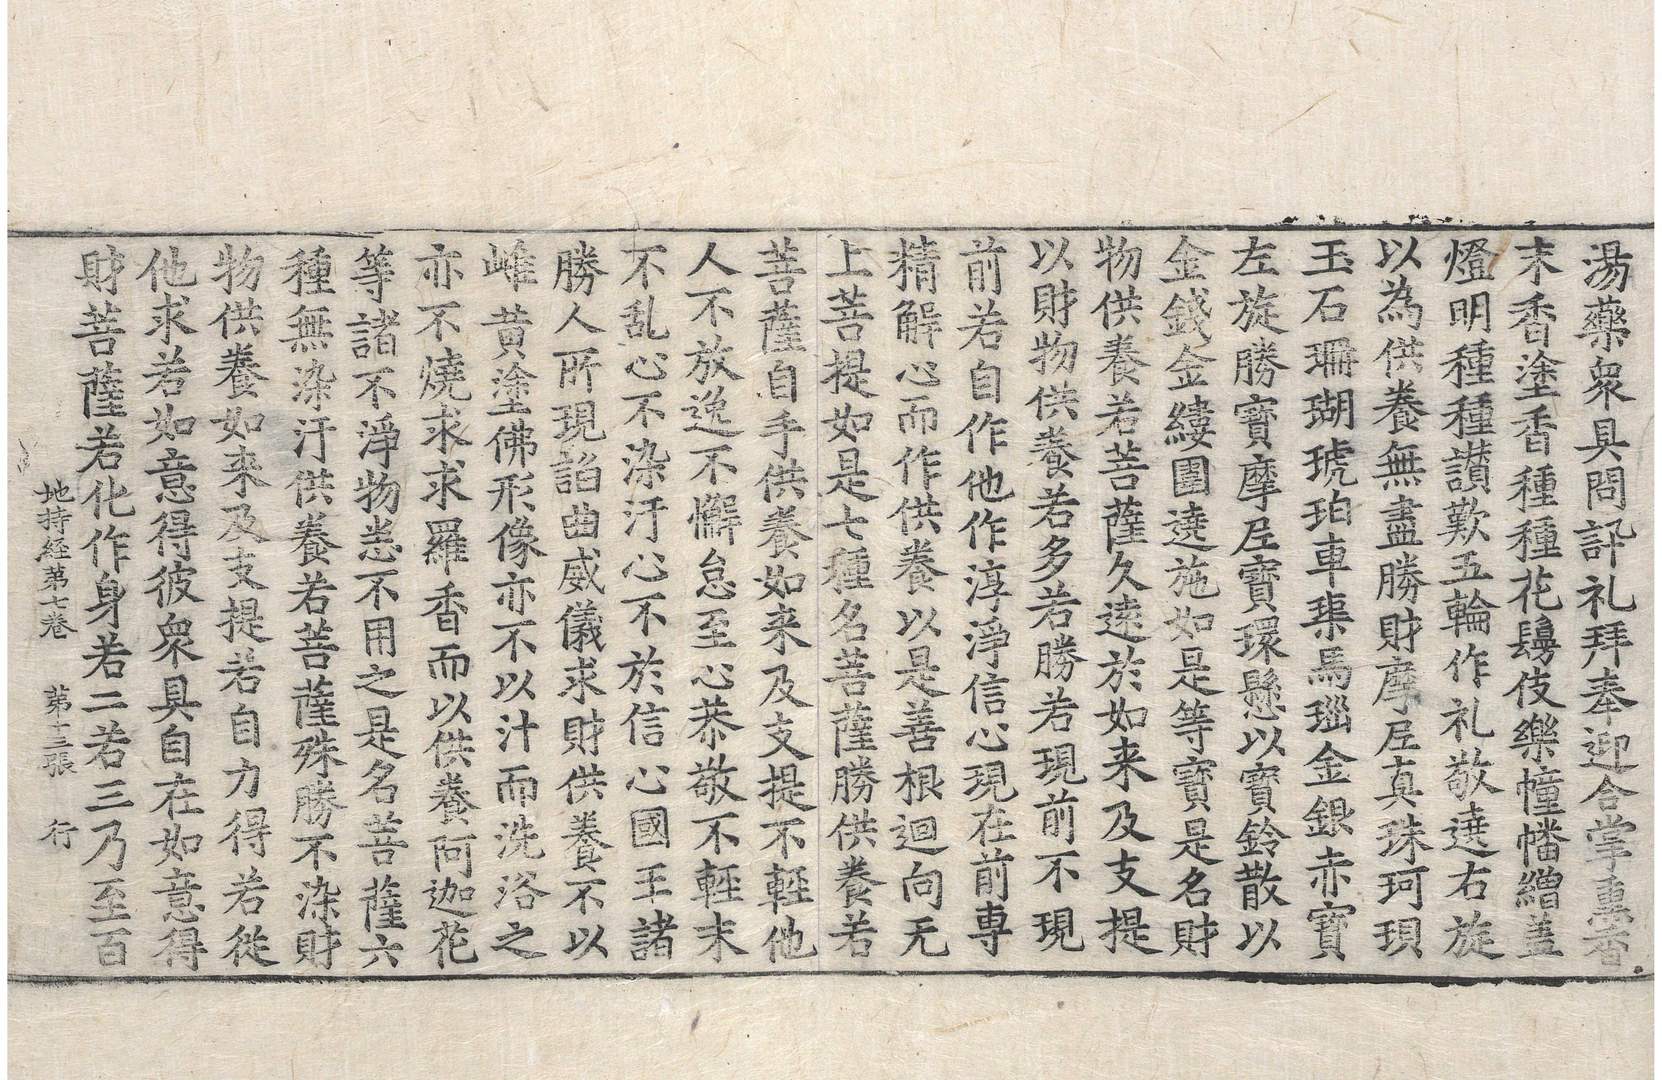 湯藥衆具問訊礼拜奉迎合掌熏香
末香塗香種種花鬘伎樂幢幡繒盖
燈明種種讃歎五輪作礼敬遶右旋
以為供養無盡勝財摩𡰱真珠珂貝
玉石珊瑚琥珀車𤦲馬瑙金銀赤寶
左旋勝寶摩𡰱寶環懸以寶鈴散以
金錢金縷圍遶施如是等寶是名財
物供養若菩薩久遠於如来及支提
以財物供養若多若勝若現前不現
前若自作他作淳淨信心現在前專
精解心而作供養以是善根迴向无
上菩提如是七種名菩薩勝供養若
菩薩自手供養如来及支提不輕他
人不放逸不懈怠至心恭敬不輕末
不乱心不染汙心不於信心國王諸
勝人所現諂曲威儀求財供養不以
雌黄塗佛形像亦不以汁而洗浴之
亦不燒求求羅香而以供養阿迦花
等諸不淨物悉不用之是名菩薩六
種無染汙供養若菩薩殊勝不染財
物供養如来及支提若自力得若従
他求若如意得彼衆具自在如意得
財菩薩若化作身若二若三乃至百
地持経第七巻 第十二張 行